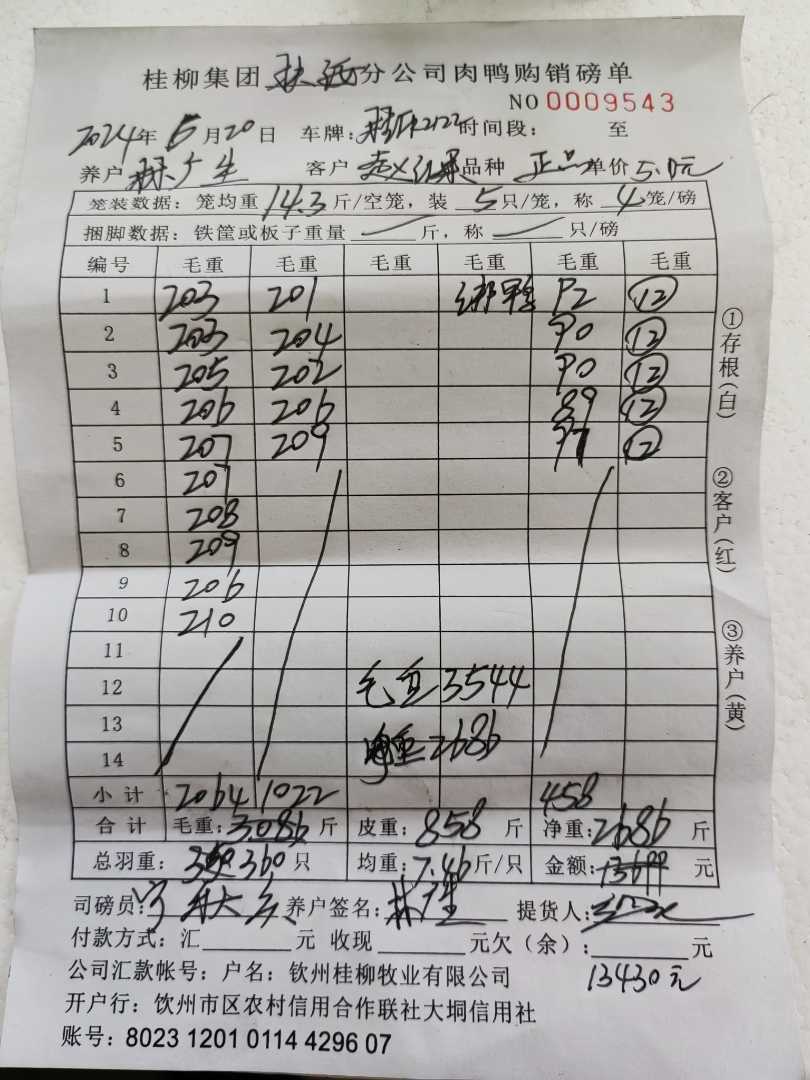 桂柳集团 分公司肉鸭购销磅单
NO 0009543
2024年5月20日 车牌: 2122 时间段: 至
养户 广生 客户 品种 正品 单价5.0元
笼装数据: 笼均重14.3斤/空笼, 装5只/笼, 称4笼/磅
捆脚数据: 铁筐或板子重量 斤, 称 只/磅
编号 毛重 毛重 毛重 毛重 毛重 毛重
1 203 201 绑鸭 92 12
2 203 204 90 12
3 205 202 90 12
4 206 206 89 12
5 207 209 97 12
6 207
7 208
8 209
9 206
10 210
11
12 毛重3544
13 净重2686
14
小计 2064 1022 458
合计 毛重:3086斤 皮重:858斤 净重:2686斤
总羽重: 360只 均重:7.46斤/只 金额: 元
司磅员: 养户签名: 提货人:
付款方式: 汇 元 收现 元欠(余): 元
公司汇款帐号: 户名: 钦州桂柳牧业有限公司 13430元
开户行: 钦州市区农村信用合作联社大垌信用社
账号: 8023 1201 0114 4296 07
①存根(白)
②客户(红)
③养户(黄)